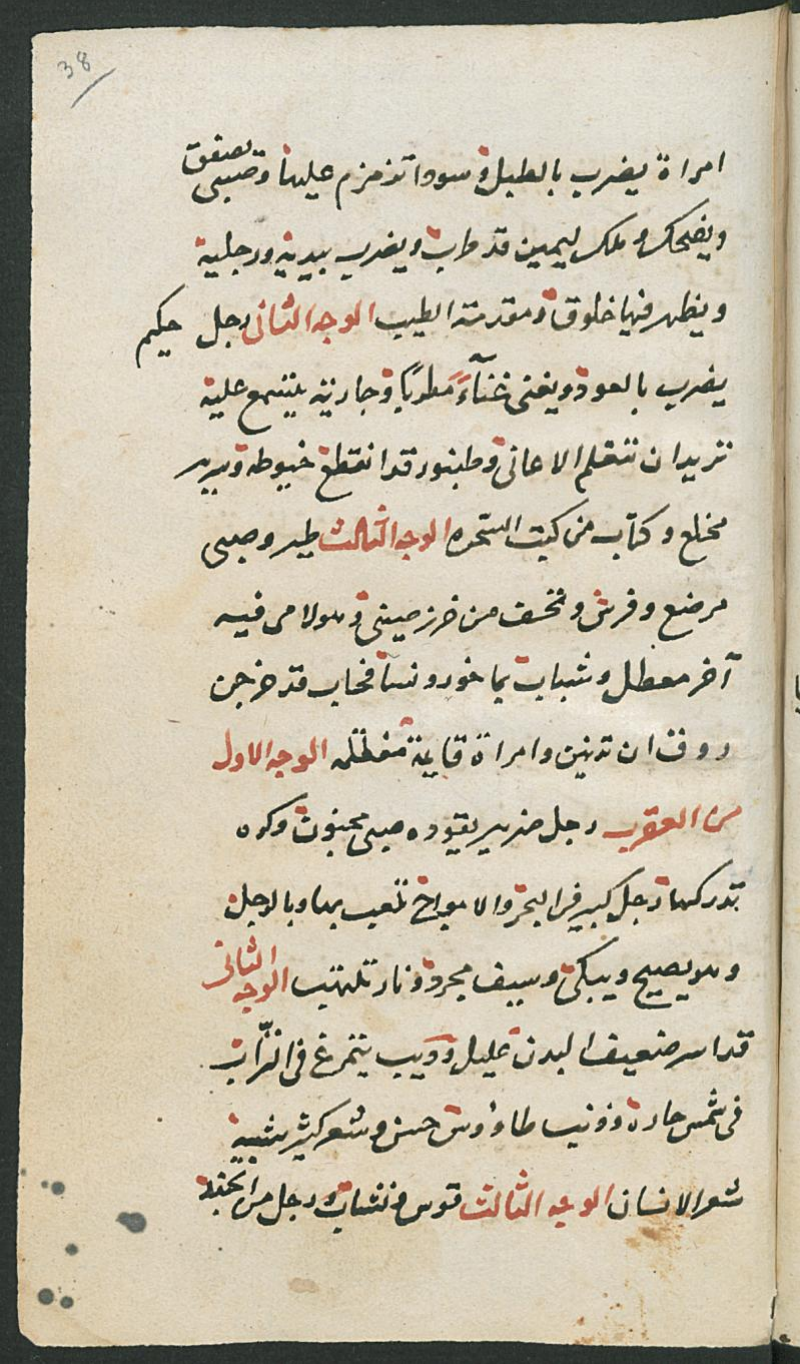 38
امراة يضرب بالطبل و سودا تزمزم عليها وصبى يصفق
ويضحك و ملك ليمين قد طاب و يضرب بيديه ورجليه
و يظهر فيها خلوق الطيب الوجه الثانى رجل حكيم
يضرب بالعود ويغنى غنآء مطربا و جارية يستمع عليه
تريد ان تتعلم الاغانى و طنبور قد انقطع خيوطه و سرير
مخلع و كتاب من كتب السحره الوجه الثالث طير وصبى
مرضع و فرش و من خرز صينى و
آخر معطل و شباب ونسا قحاب قد خرجن
ان تدنين وامراة قايمة الوجه الاول
من العقرب رجل ضرير يقوده صبى مجنون وكوه
رجل كبير فى البحر والامواج تلعب بها وبالرجل
وهو يصيح ويبكى و سيف مجرد و نار تلهب الوجه الثانى
ضعيف البدن عليل و دب يتمرغ فى التراب
فى شمس حارة و ذنب طاووس حسن و شعر كثير شبيه
شعر الانسان الوجه الثالث قوس و نشاب و رجل من